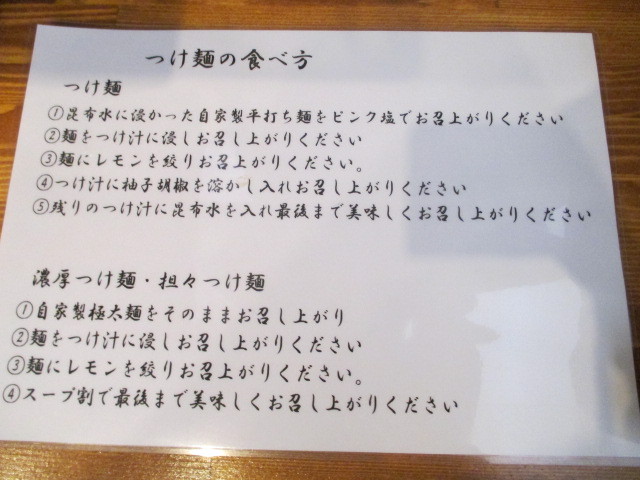 つけ麺の食べ方
つけ麺
①昆布水に浸かった自家製平打ち麺をピンク塩でお召上がりください
②麺をつけ汁に浸しお召し上がりください
③麺にレモンを絞りお召上がりください。
④つけ汁に柚子胡椒を溶かし入れお召し上がりください
⑤残りのつけ汁に昆布水を入れ最後まで美味しくお召し上がりください
濃厚つけ麺・担々つけ麺
①自家製極太麺をそのままお召し上がり
②麺をつけ汁に浸しお召し上がりください
③麺にレモンを絞りお召上がりください。
④スープ割で最後まで美味しくお召し上がりください